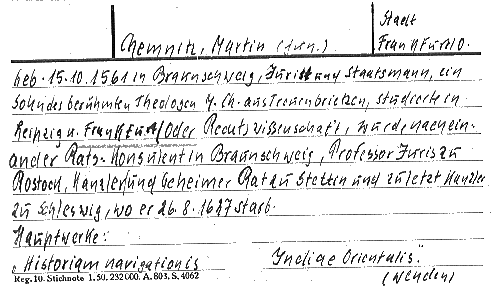 Chemnitz, Martin (jun.)
Stadt
Frankfurt/O.
geb. 15.10.1561 in Braunschweig, Jurist und Staatsmann, ein
Sohn des berühmten Theologen M. Ch. aus Treuenbrietzen, studierte in
Leipzig u. Frankfurt/Oder Rechtswissenschaft, wurde nachein-
ander Rats-Konsulent in Braunschweig, Professor Juris zu
Rostock, Kanzler und Geheimer Rat zu Stettin und zuletzt Kanzler
zu Schleswig, wo er 26.8.1627 starb.
Hauptwerke:
"Historiam navigationis Indiae Orientalis".
Reg. 10. Stichnote 1. 50. 232 000. A. 803. S. 4062
(wenden)